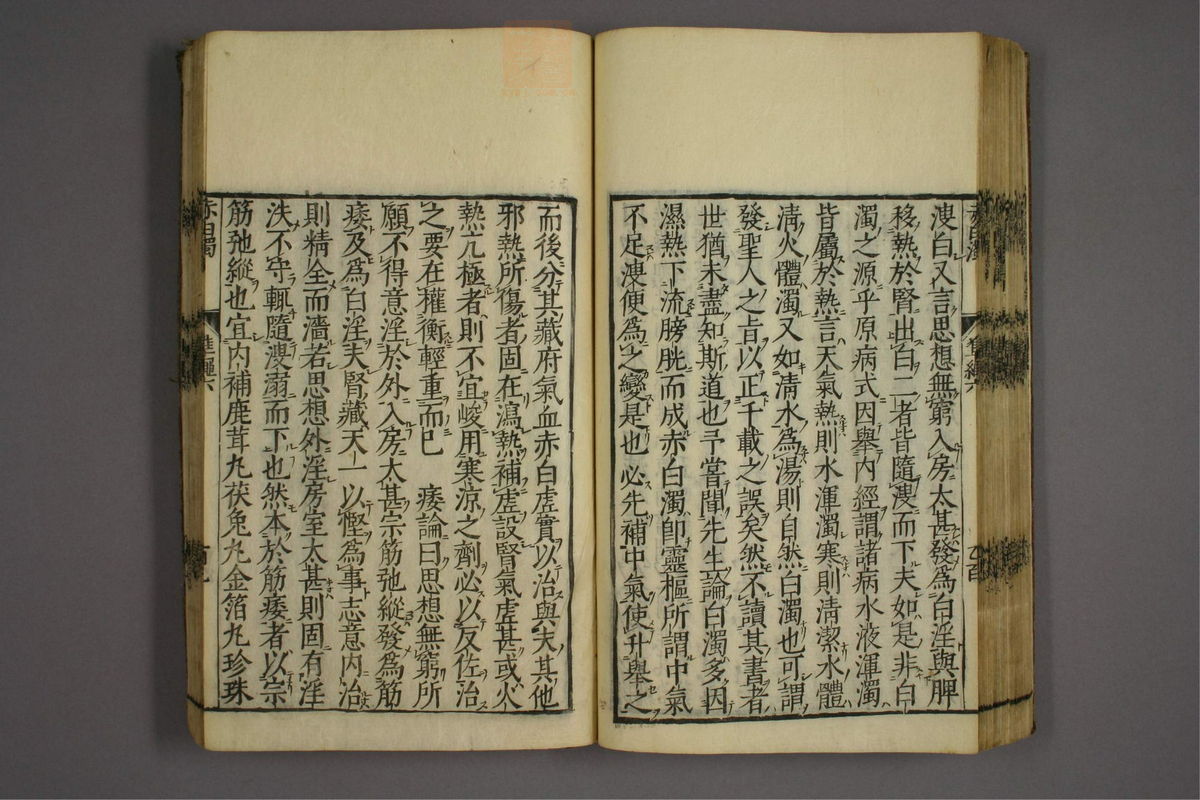 溲白又言思想無窮入房太甚發為白淫與脾
移熱於腎出白二者皆隨溲而下夫如是非白
濁之源乎原病式因舉內經謂諸病水液渾濁
皆屬於熱言天氣熱則水渾濁寒則清潔水體
清火體濁又如清水為湯則自然白濁也可謂
發聖人之旨以正千載之誤矣然不讀其書者
世猶未盡知斯道也予嘗聞先生論白濁多因
濕熱下流膀胱而成赤白濁即靈樞所謂中氣
不足溲便為之變是也必先補中氣使升舉之
而後分其藏府氣血赤白虛實以治與夫其他
邪熱所傷者固在瀉熱補虛設腎氣虛甚或火
熱亢極者則不宜峻用寒涼之劑必以反佐治
之要在權衡輕重而已 痿論曰思想無窮所
願不得意淫於外入房太甚宗筋弛縱發為筋
痿及為白淫夫腎藏天一以慳為事志意內治
則精全而濇若思想外淫房室太甚則固有淫
泆不守輒隨溲溺而下也然本於筋痿者以宗
筋弛縱也宜內補鹿茸丸茯兔丸金箔丸珍珠
赤白濁
準繩六